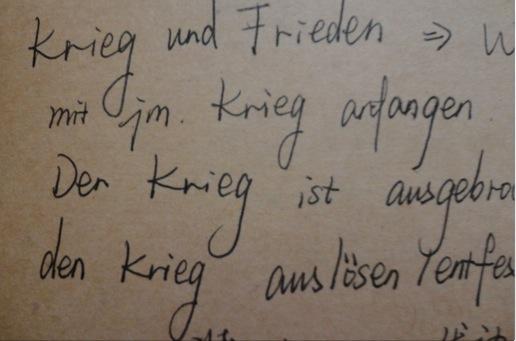 Krieg und Frieden ⇒ W
mit jm. Krieg anfangen
Der Krieg ist ausgebro
den Krieg auslösen / entfes